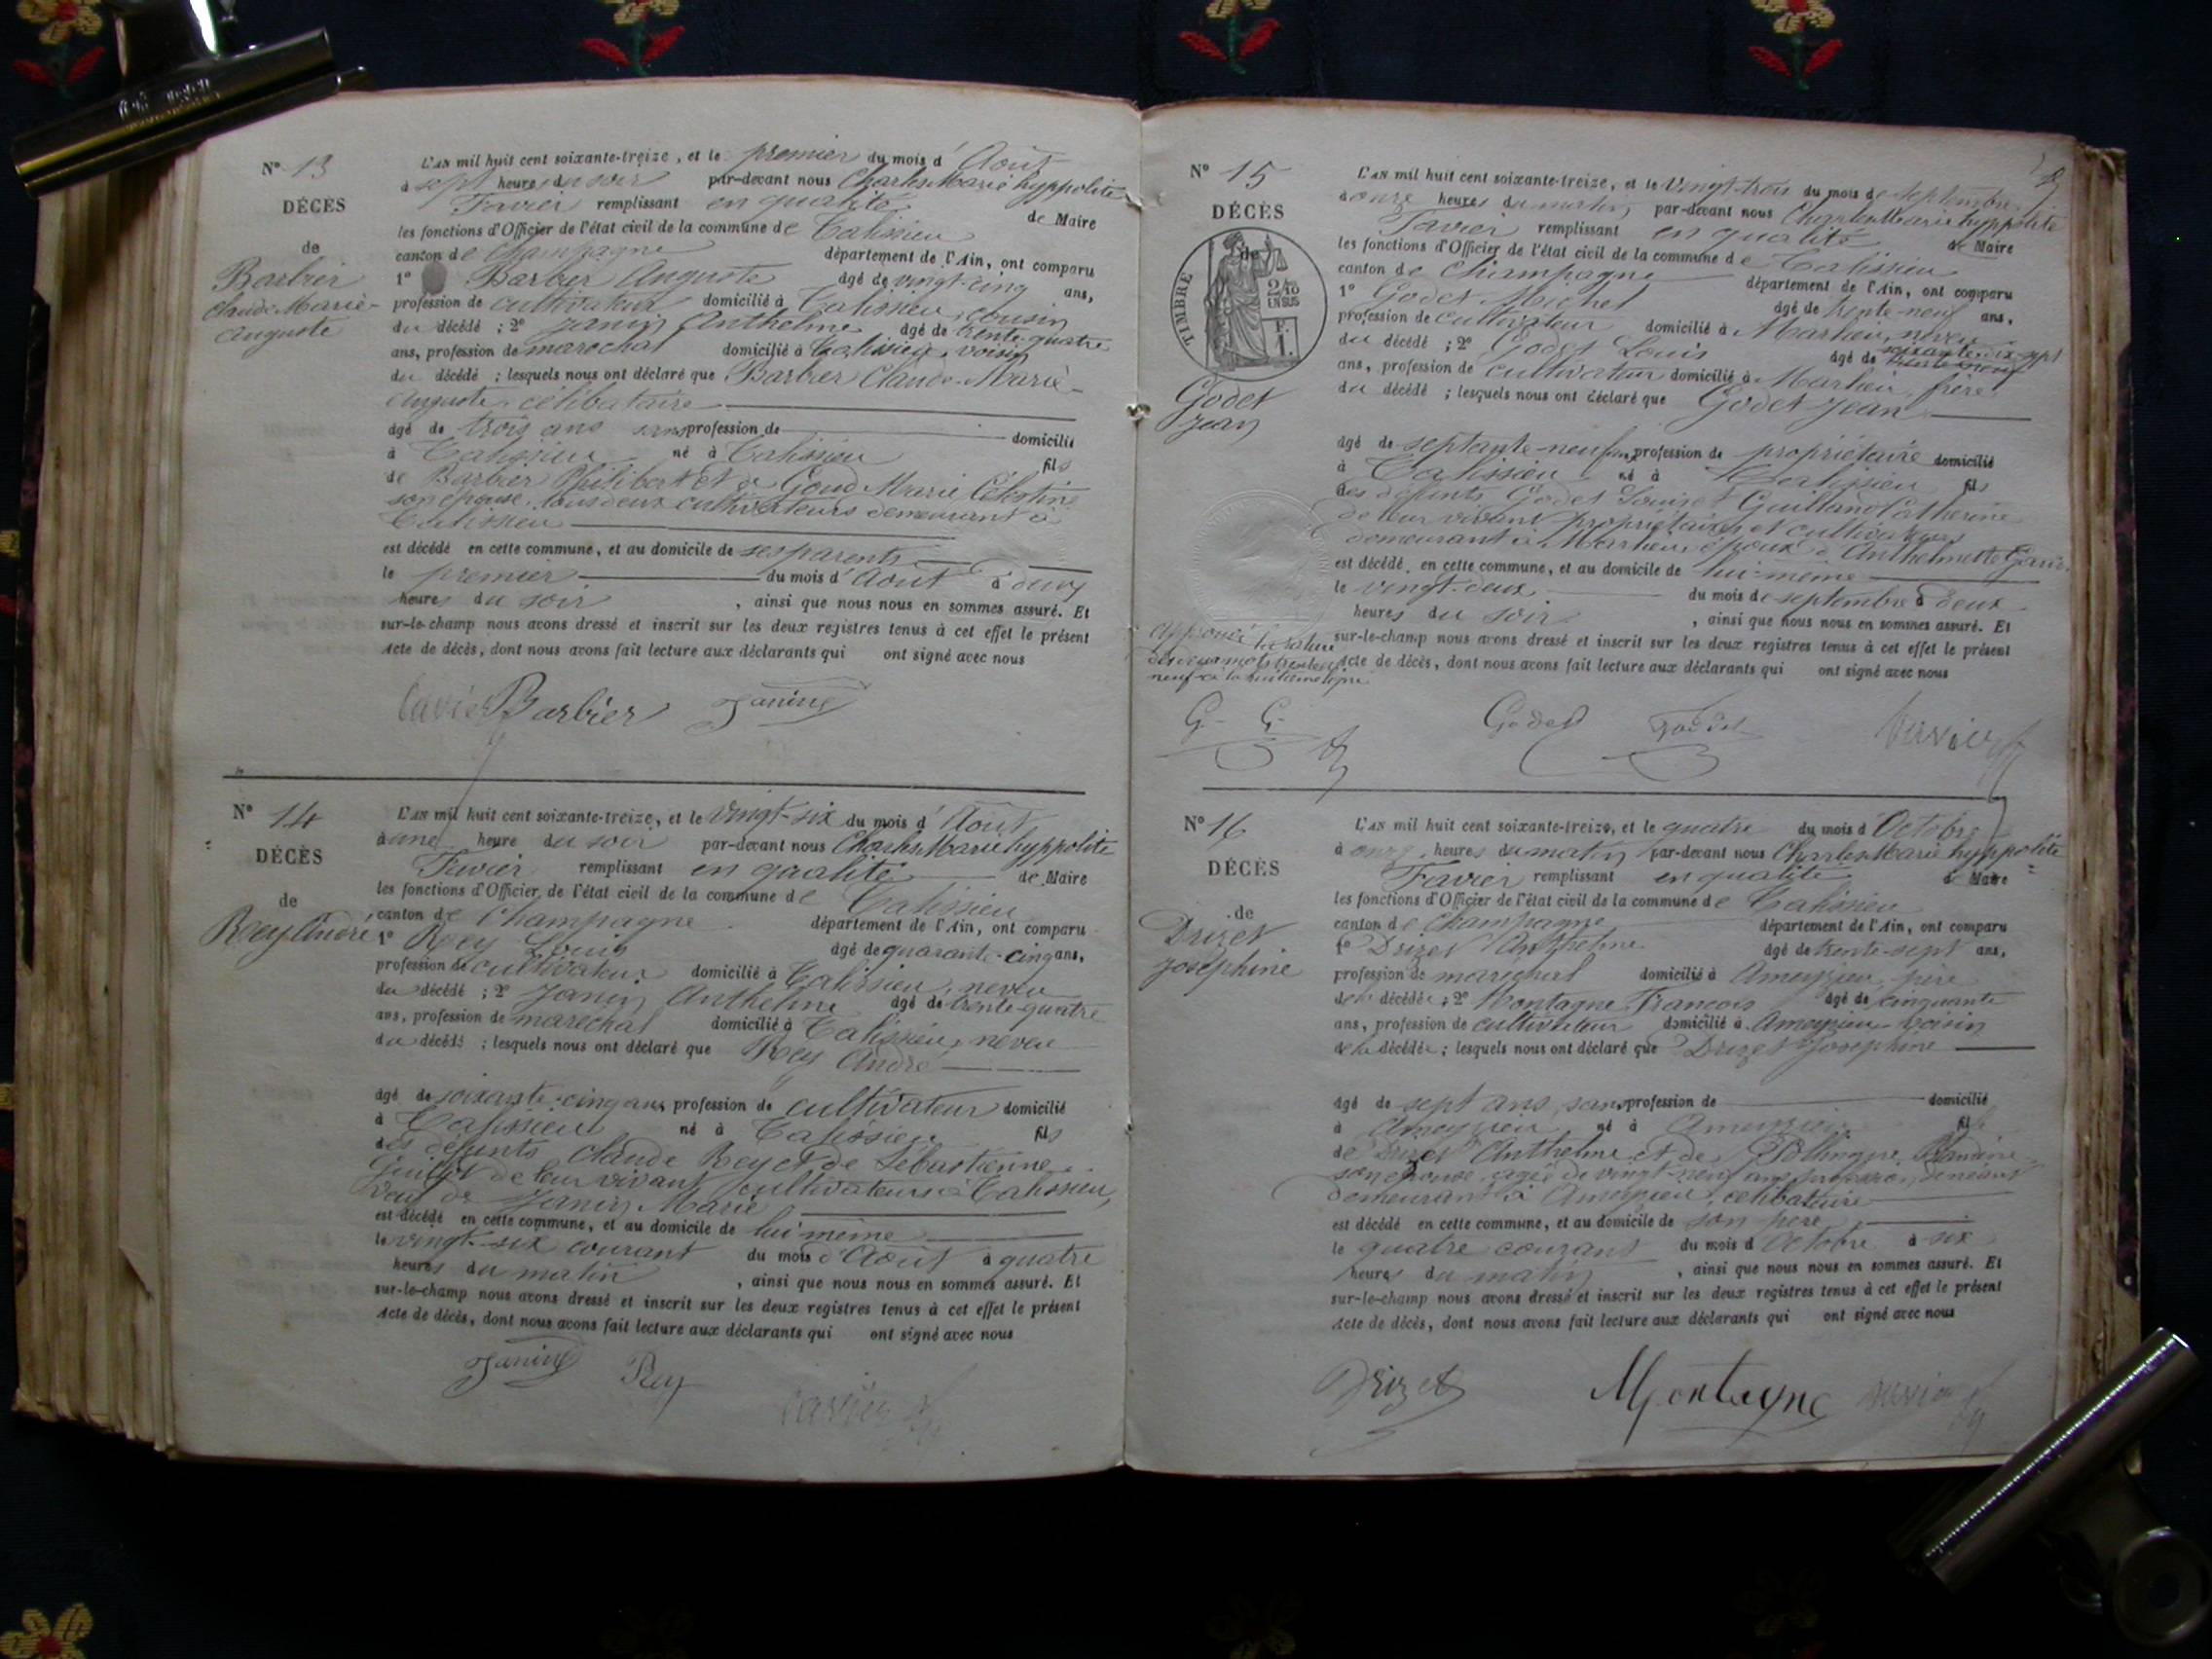 N° 13
DÉCÈS
de
Barbier
Claude Marie-
Auguste
L'AN mil huit cent soixante-treize, et le premier du mois d'Août
à sept heures du soir par-devant nous Charles Marie hyppolite
Favier remplissant en qualité de Maire
les fonctions d'Officier de l'état civil de la commune de Talissieu
canton de Champagne département de l'Ain, ont comparu
1° Barbier Auguste âgé de vingt-cinq ans,
profession de cultivateur domicilié à Talissieu, cousin
du décédé ; 2° Janin Anthelme âgé de trente-quatre
ans, profession de maréchal domicilié à Talissieu, voisin
du décédé ; lesquels nous ont déclaré que Barbier Claude-Marie-
Auguste, célibataire
âgé de trois ans sans profession de domicilié
à Talissieu né à Talissieu fils
de Barbier Philibert et de Goud Marie Célestine
son épouse, tous deux cultivateurs demeurant à
Talissieu
est décédé en cette commune, et au domicile de ses parents
le premier du mois d'Août à
heures du soir , ainsi que nous nous en sommes assuré. Et
sur-le-champ nous avons dressé et inscrit sur les deux registres tenus à cet effet le présent
Acte de décès, dont nous avons fait lecture aux déclarants qui ont signé avec nous
Favier Barbier Janin
N° 14
DÉCÈS
de
Rey André
L'AN mil huit cent soixante-treize, et le vingt-six du mois d'Août
à une heure du soir par-devant nous Charles Marie hyppolite
Favier remplissant en qualité de Maire
les fonctions d'Officier de l'état civil de la commune de Talissieu
canton de Champagne département de l'Ain, ont comparu
1° Rey Louis âgé de quarante-cinq ans,
profession de cultivateur domicilié à Talissieu, neveu
du décédé ; 2° Janin Anthelme âgé de trente-quatre
ans, profession de maréchal domicilié à Talissieu, neveu
du décédé ; lesquels nous ont déclaré que Rey André
âgé de soixante-cinq ans profession de cultivateur domicilié
à Talissieu né à Talissieu fils
des défunts Claude Rey et de Sébastienne
de leur vivant cultivateurs à Talissieu,
veuf de Janin Marie
est décédé en cette commune, et au domicile de lui même
le vingt-six courant du mois d'Août à quatre
heures du matin , ainsi que nous nous en sommes assuré. Et
sur-le-champ nous avons dressé et inscrit sur les deux registres tenus à cet effet le présent
Acte de décès, dont nous avons fait lecture aux déclarants qui ont signé avec nous
Janin Rey Favier
N° 15
DÉCÈS
de
TIMBRE
2/10
EN SUS
F.
1.
Godet
Jean
L'AN mil huit cent soixante-treize, et le vingt-trois du mois de septembre
à onze heures du matin par-devant nous Charles Marie hyppolite
Favier remplissant en qualité de Maire
les fonctions d'Officier de l'état civil de la commune de Talissieu
canton de Champagne département de l'Ain, ont comparu
1° Godet Michel âgé de trente-neuf ans,
profession de cultivateur domicilié à Marlieu, neveu
du décédé ; 2° Godet Louis âgé de soixante dix sept
ans, profession de cultivateur domicilié à Marlieu, frère
du décédé ; lesquels nous ont déclaré que Godet Jean
âgé de septante-neuf ans profession de propriétaire domicilié
à Talissieu né à fils
des défunts Godet Louis et Guilland Catherine
de leur vivant propriétaires et cultivateurs
demeurant à Marlieu, époux d'Anthelmette
est décédé en cette commune, et au domicile de lui-même
le vingt-deux du mois de septembre à deux
heures du soir , ainsi que nous nous en sommes assuré. Et
sur-le-champ nous avons dressé et inscrit sur les deux registres tenus à cet effet le présent
Acte de décès, dont nous avons fait lecture aux déclarants qui ont signé avec nous
approuvé la rature
des deux mots trente
neuf à la huitième ligne
G. G.
Godet Godet Favier
N° 16
DÉCÈS
de
Drizet
Joséphine
L'AN mil huit cent soixante-treize, et le quatre du mois d'Octobre
à onze heures du matin par-devant nous Charles Marie hyppolite
Favier remplissant en qualité de Maire
les fonctions d'Officier de l'état civil de la commune de Talissieu
canton de Champagne département de l'Ain, ont comparu
1° Drizet Anthelme âgé de trente-sept ans,
profession de maréchal domicilié à Ameyzieu, père
de la décédée ; 2° Montagne François âgé de cinquante
ans, profession de cultivateur domicilié à Ameyzieu voisin
de la décédée ; lesquels nous ont déclaré que Drizet Joséphine
âgé de sept ans, sans profession de domicilié
à Ameyzieu né à Ameyzieu fille
de Drizet Anthelme et de
son épouse, agée de vingt-neuf ans
demeurant à Ameyzieu, célibataire
est décédé en cette commune, et au domicile de son père
le quatre courant du mois d'Octobre à six
heures du matin , ainsi que nous nous en sommes assuré. Et
sur-le-champ nous avons dressé et inscrit sur les deux registres tenus à cet effet le présent
Acte de décès, dont nous avons fait lecture aux déclarants qui ont signé avec nous
Drizet Montagne Favier